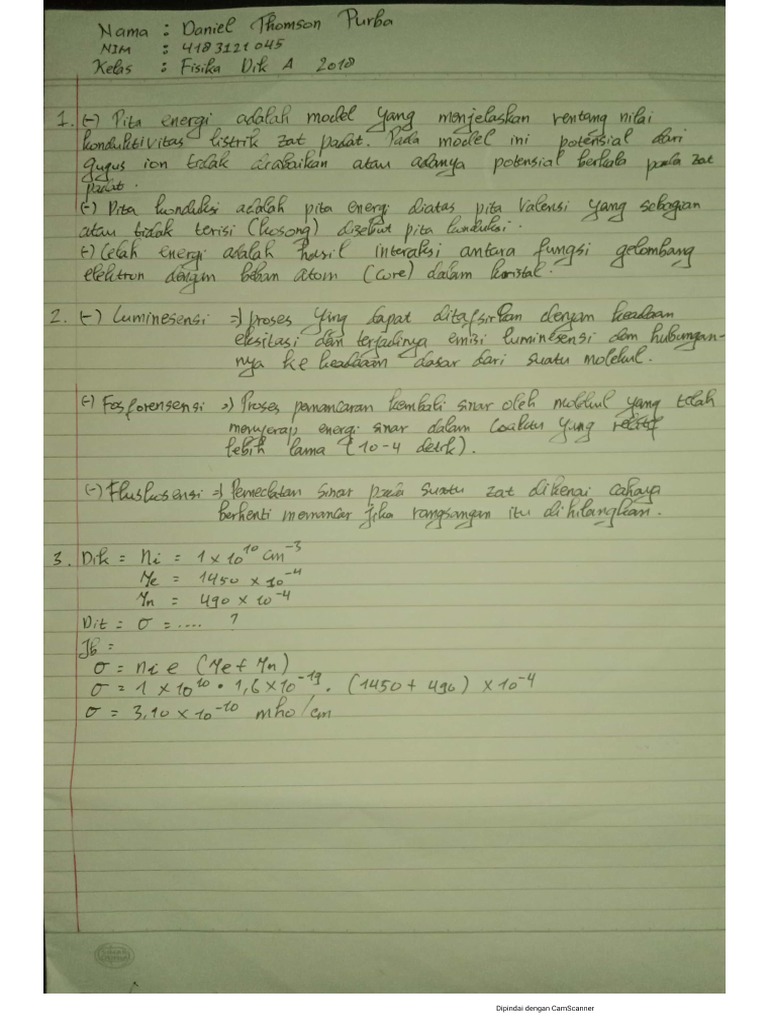 Nama : Daniel Thomson Purba
NIM : 4183121045
Kelas : Fisika Dik A 2018
1. (-) Pita energi adalah model yang menjelaskan rentang nilai
konduktivitas listrik zat padat. Pada model ini potensial dari
gugus ion tidak diabaikan atau adanya potensial berkala pada zat
padat.
(-) Pita konduksi adalah pita energi diatas pita valensi yang sebagian
atau tidak terisi (kosong) disebut pita konduksi.
(-) Celah energi adalah hasil interaksi antara fungsi gelombang
elektron dengan beban atom (core) dalam kristal.
2. (-) Luminesensi => proses yang dapat ditafsirkan dengan keadaan
eksitasi dan terjadinya emisi luminesensi dan hubungan-
nya ke keadaan dasar dari suatu molekul.
(-) Fosforensensi => Proses pemancaran kembali sinar oleh molekul yang telah
menyerap energi sinar dalam waktu yang relatif
lebih lama (10-4 detik).
(-) => Pemecatan sinar pada suatu zat dikenai cahaya
berhenti memancar jika rangsangan itu dihilangkan.
3. Dik = Ni = 1 x 10^10 cm^-3
Me = 1450 x 10^-4
Mn = 490 x 10^-4
Dit = σ = .... ?
Jb =
σ = ni e (Me + Mn)
σ = 1 x 10^10 . 1,6 x 10^-19 . (1450 + 490) x 10^-4
σ = 3,10 x 10^-10 mho/cm
Dipindai dengan CamScanner